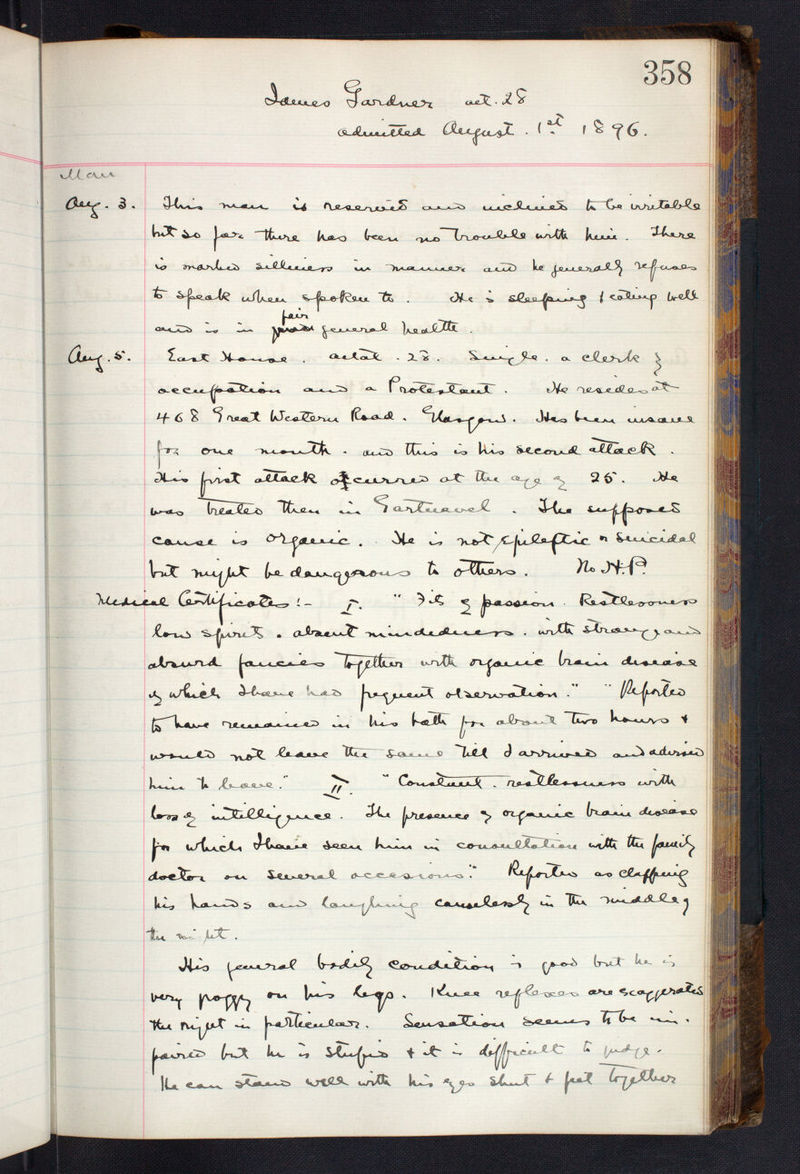 358
James Gardner aet. 28
admitted August. 1st. 1896.
Man
Aug. 3. This man is reserved and inclined to be irritable
but so far there has been no trouble with him. There
is marked silliness in manner and he generally refuses
to speak when spoken to. He is sleeping & eating well
and is in fair general health.
Aug. 5. East House. aetat. 28. Single. a clerk by
occupation and a Protestant. He resides at
468 Great Western Road. Glasgow. Has been insane
for one month. and this is his second attack.
His first attack occurred at the age of 25. He
was treated then in Gartnavel. The supposed
cause is organic. He is not epileptic or suicidal
but might be dangerous to others. No H.P.
Medical Certificates:- I. "Fits of passion. Restlessness
low spirits. absent mindedness. with strange and
absurd fancies together with organic brain disease
of which I have had frequent observation." "Reported
to have remained in his bath for about two hours &
would not leave the same till I arrived and advised
him to leave." II. "Constant. restlessness with
loss of intelligence. The presence of organic brain disease
for which I have seen him in consultation with the family
doctor on several occasions." Reported as clapping
his hands and laughing causelessly in the middle of
the night.
His general bodily condition is good but he is
very groggy on his legs. Knee reflexes are exaggerated
the right in particular. Sensation seems to be im-
paired but he is stupid & it is difficult to judge.
He can stand well with his eyes shut & feet together